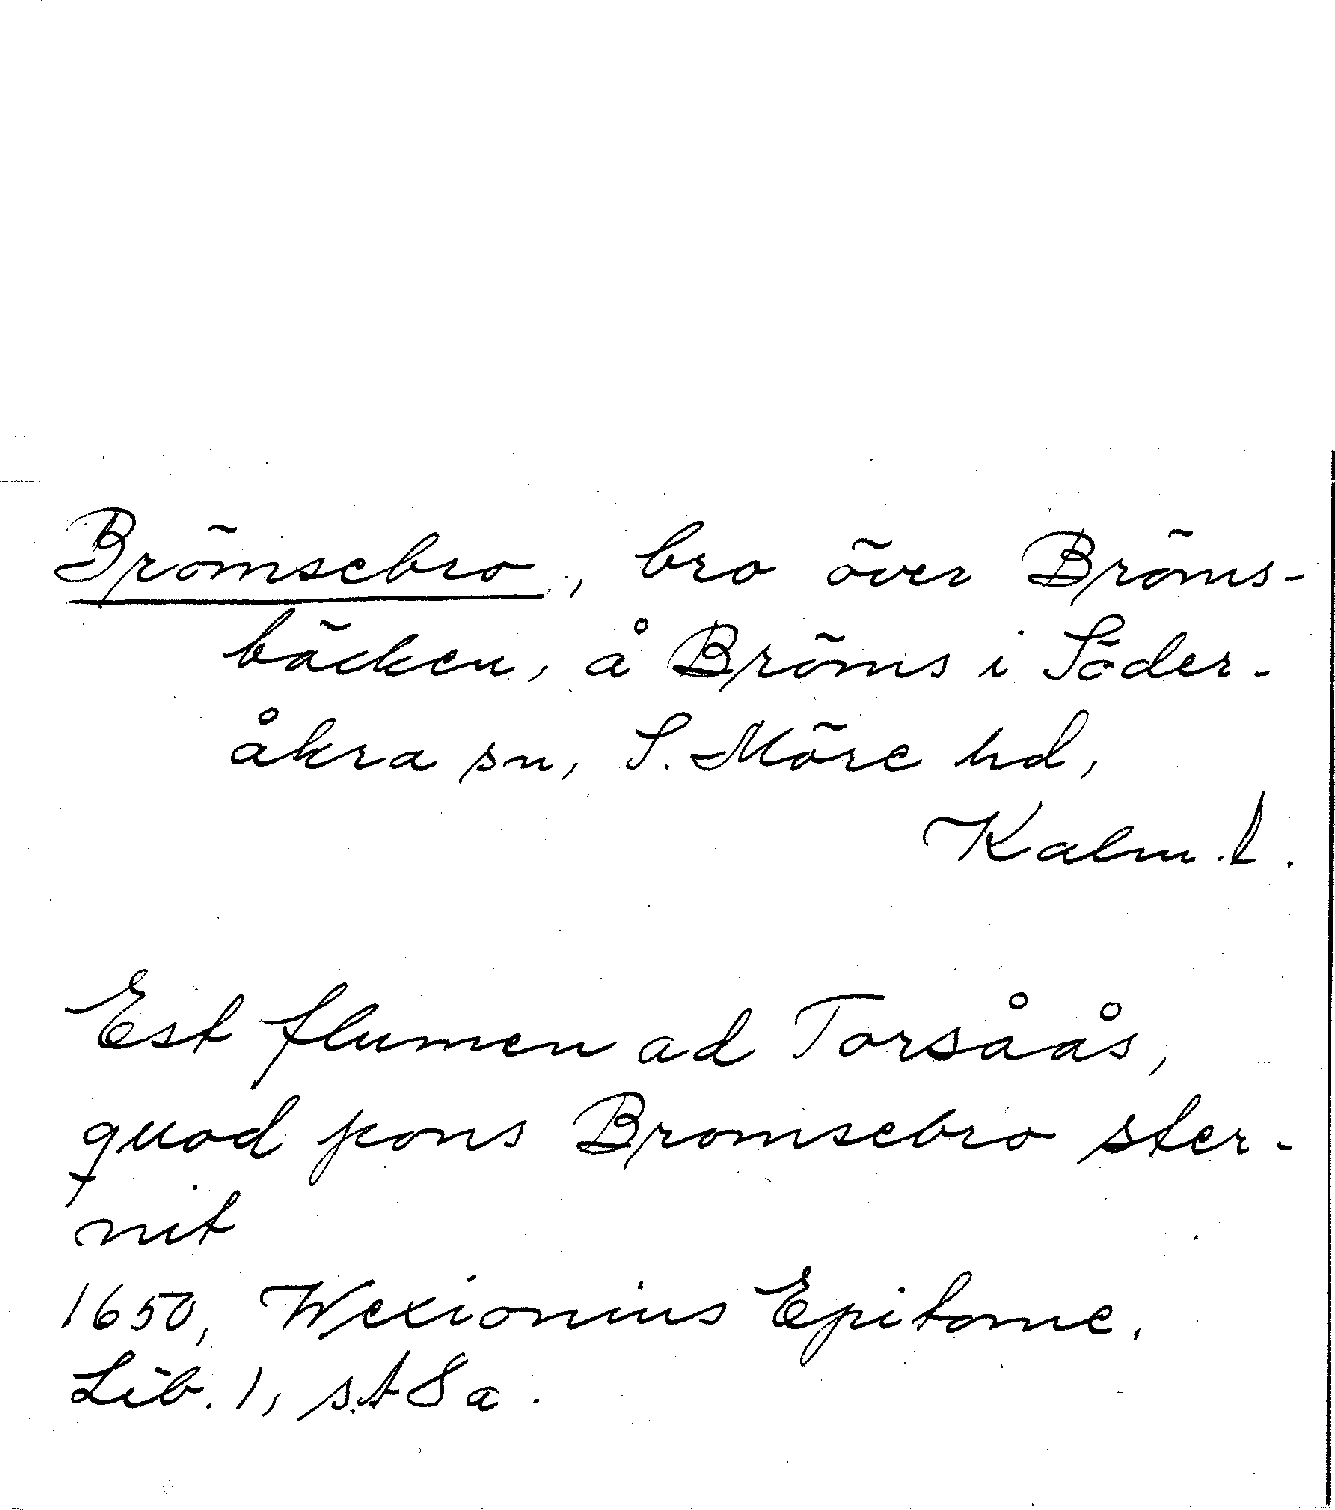 Brömsebro, bro över Bröms-
bäcken, å Bröms i Söder-
åkra sn, S. Möre hd,
Kalm. l.
Est flumen ad Torsåås,
quod pons Bromsebro ster-
nit
1650, Wexionius Epitome.
Lib. 1,